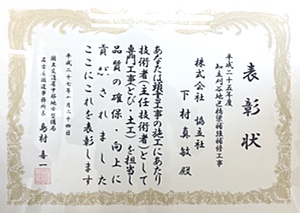 表彰状
平成二十五年度
知立刈谷地区橋梁補強補修工事
株式会社 協立社
下村真敏殿
あなたは頭書工事の施工にあたり
技術者(主任技術者)として
専門工事(とび・土工)を担当し
品質の確保・向上に
貢献されました
ここにこれを表彰します
平成二十七年一月二十四日
国土交通省中部地方整備局
名古屋国道事務所長
島村喜一